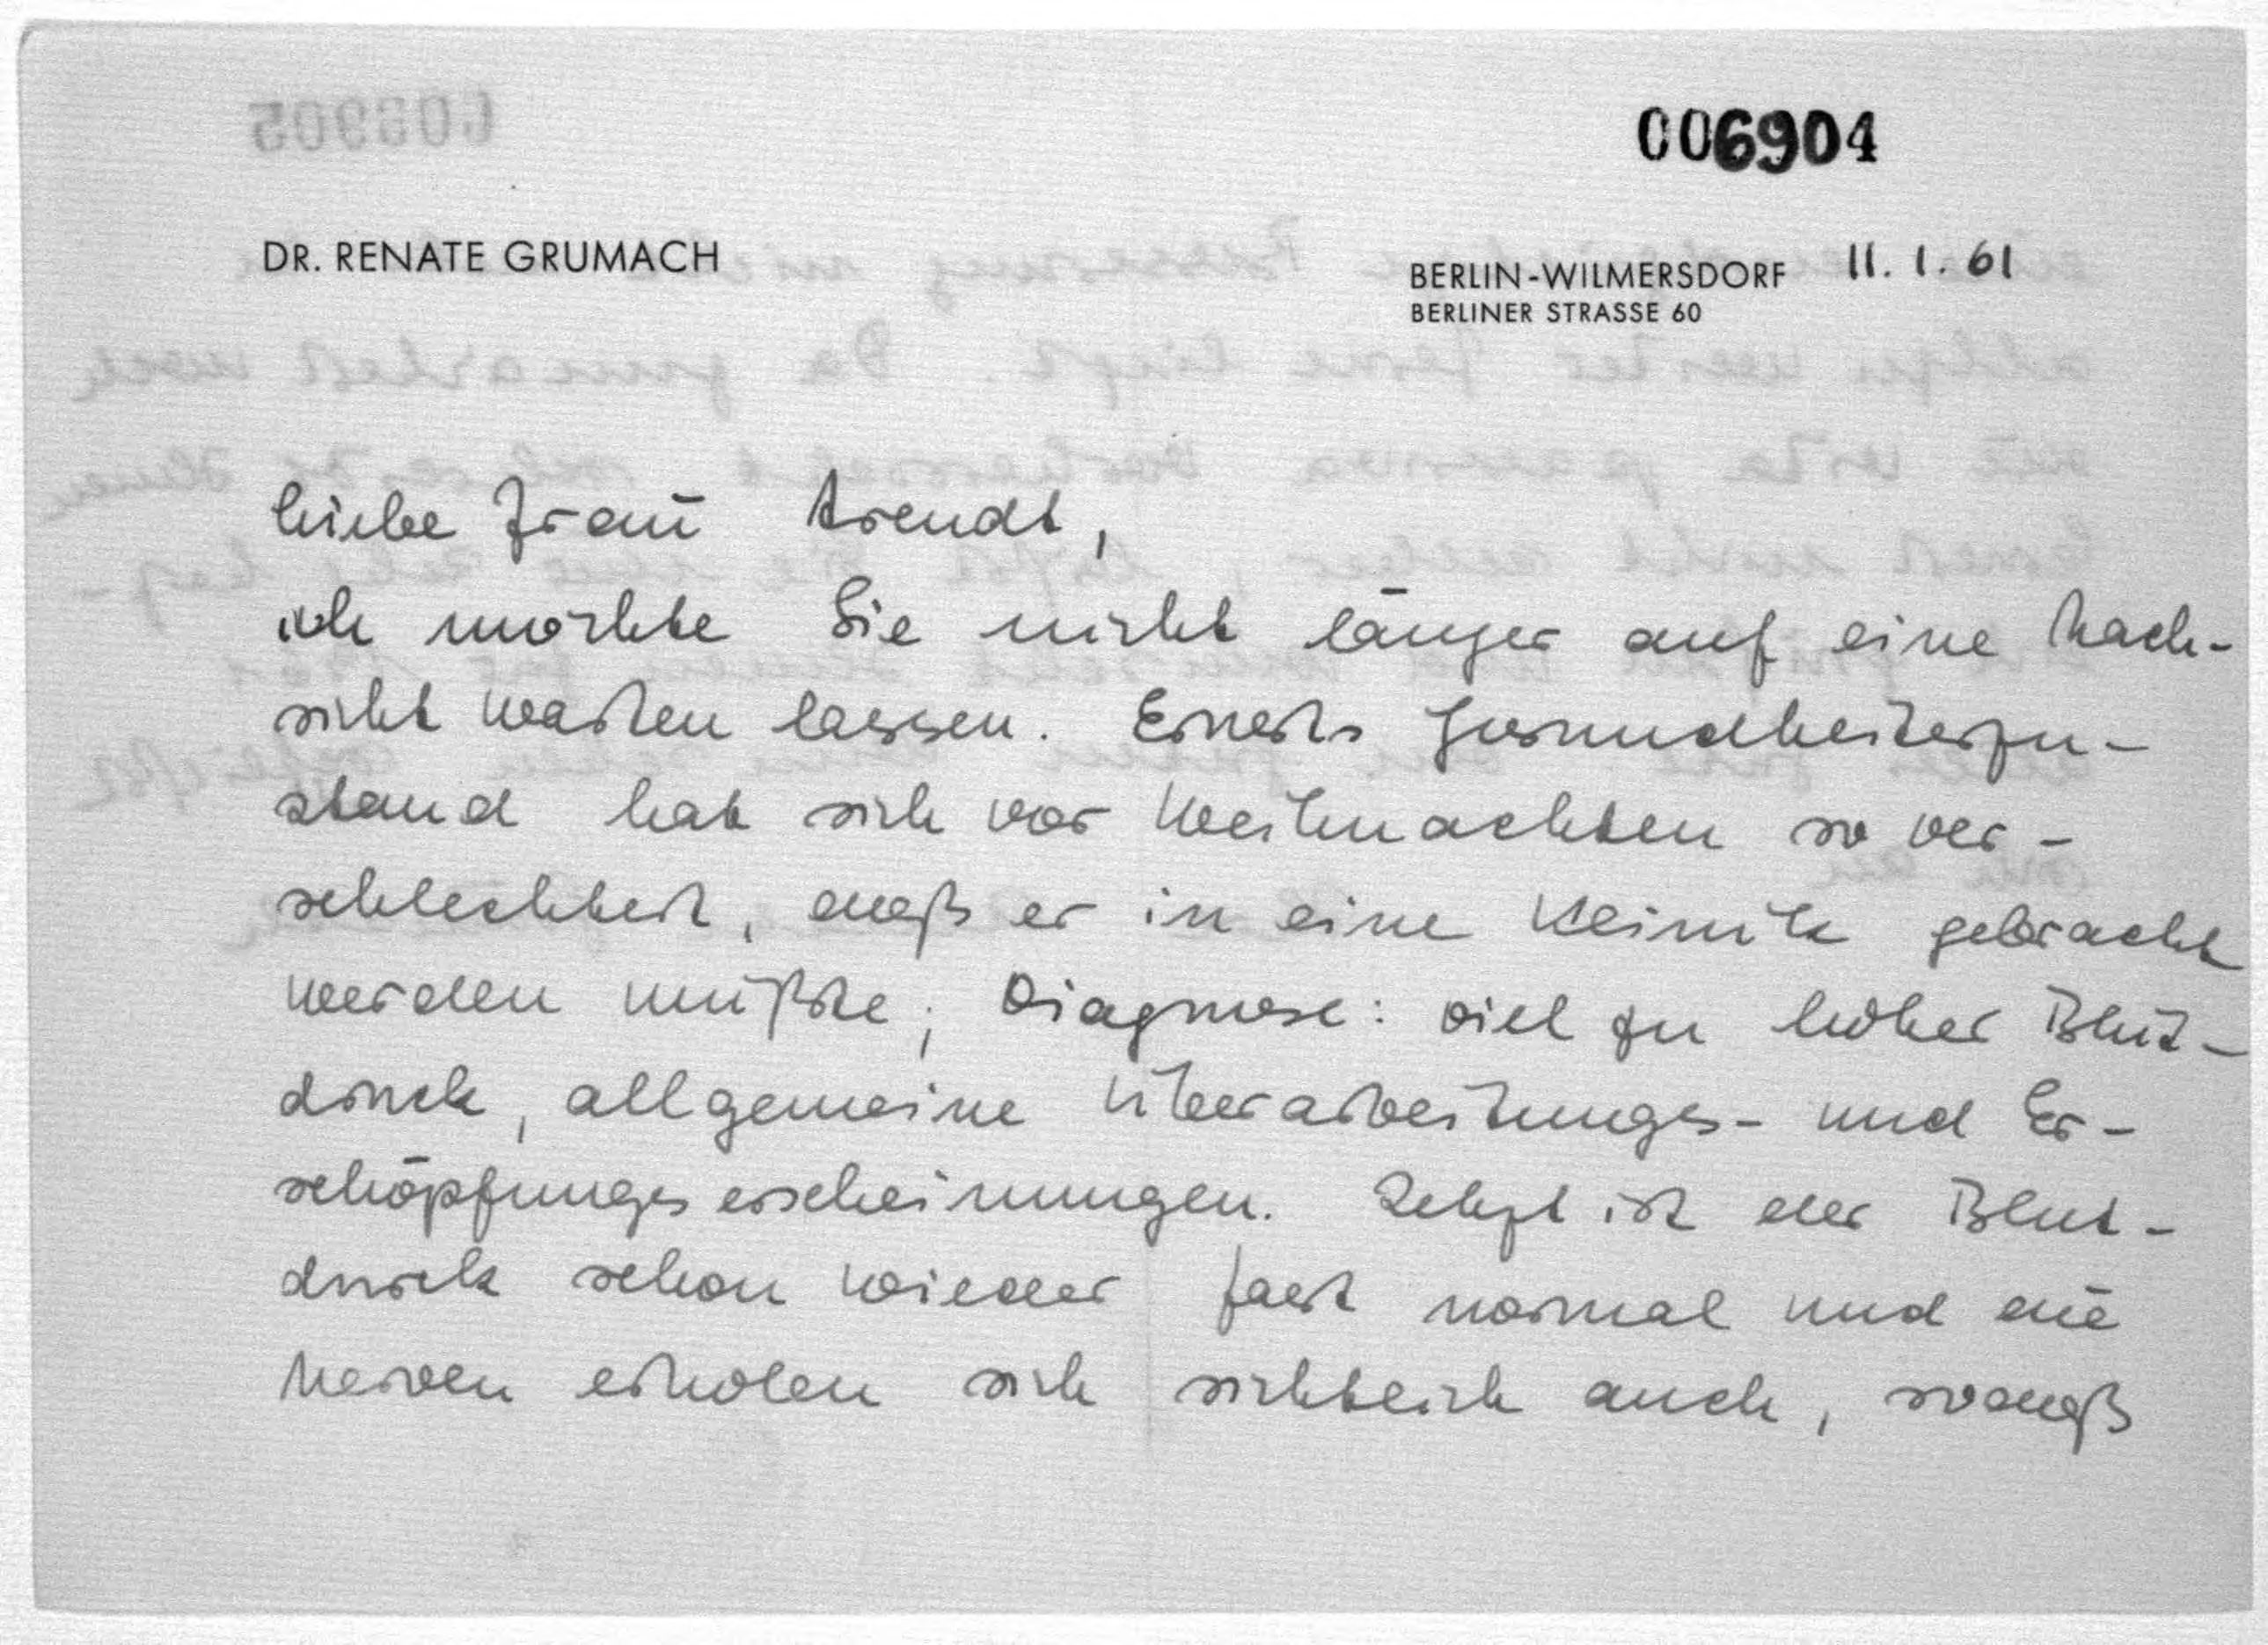 006904
DR. RENATE GRUMACH
BERLIN-WILMERSDORF 11. 1. 61
BERLINER STRASSE 60
Liebe Frau Arendt,
ich möchte Sie nicht länger auf eine Nach-
richt warten lassen. Ernsts Gesundheitszu-
stand hat sich vor Weihnachten so ver-
schlechtert, daß er in eine Klinik gebracht
werden mußte; Diagnose: viel zu hoher Blut-
druck, allgemeine Überarbeitungs- und Er-
schöpfungserscheinungen. Jetzt ist der Blut-
druck schon wieder fast normal und die
Nerven erholen sich sichtlich auch, sodaß